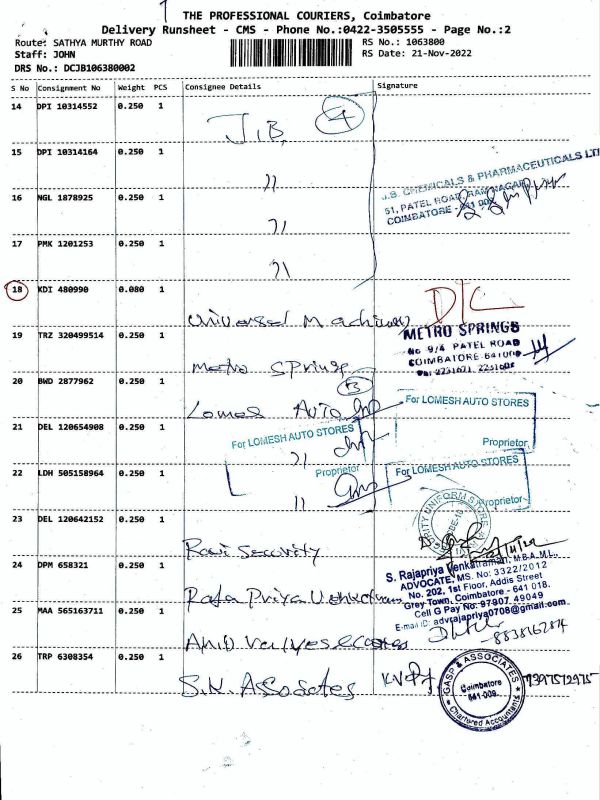 THE PROFESSIONAL COURIERS, Coimbatore
Delivery Runsheet - CMS - Phone No.:0422-3505555 - Page No.:2
Route: SATHYA MURTHY ROAD
RS No.: 1063800
Staff: JOHN
RS Date: 21-Nov-2022
DRS No.: DCJB106380002
S No Consignment No Weight PCS Consignee Details Signature
14 DPI 10314552 0.250 1
J.B. 4
15 DPI 10314164 0.250 1
"
J.B. CHEMICALS & PHARMACEUTICALS LT
51, PATEL ROAD, RAM NAGAR
COIMBATORE - 641 009
16 NGL 1878925 0.250 1
"
17 PMK 1201253 0.250 1
"
18 KDI 480990 0.080 1
Universal Machinary
D/C
19 TRZ 320499514 0.250 1
Metro Springs
METRO SPRINGS
No 9/4 PATEL ROAD
COIMBATORE 641009
20 BWD 2877962 0.250 1
3
Lomes Auto
For LOMESH AUTO STORES
Proprietor
21 DEL 120654908 0.250 1
"
For LOMESH AUTO STORES
Proprietor
22 LDH 505158964 0.250 1
"
For LOMESH AUTO STORES
Proprietor
23 DEL 120642152 0.250 1
Ravi Security
24 DPM 658321 0.250 1
Raja Priya
S. Rajapriya Venkatraman, M.B.A.M.L.,
ADVOCATE, MS. No: 3322/2012
No. 202, 1st Floor, Addis Street
Grey Town, Coimbatore - 641 018.
Cell G Pay No: 97907 49049
E-mail ID: advrajapriya0708@gmail.com
25 MAA 565163711 0.250 1
26 TRP 6308354 0.250 1
S.N. Assosates
GASP & ASSOCIATES
Coimbatore
641 009.
Chartered Accountants
7397572975